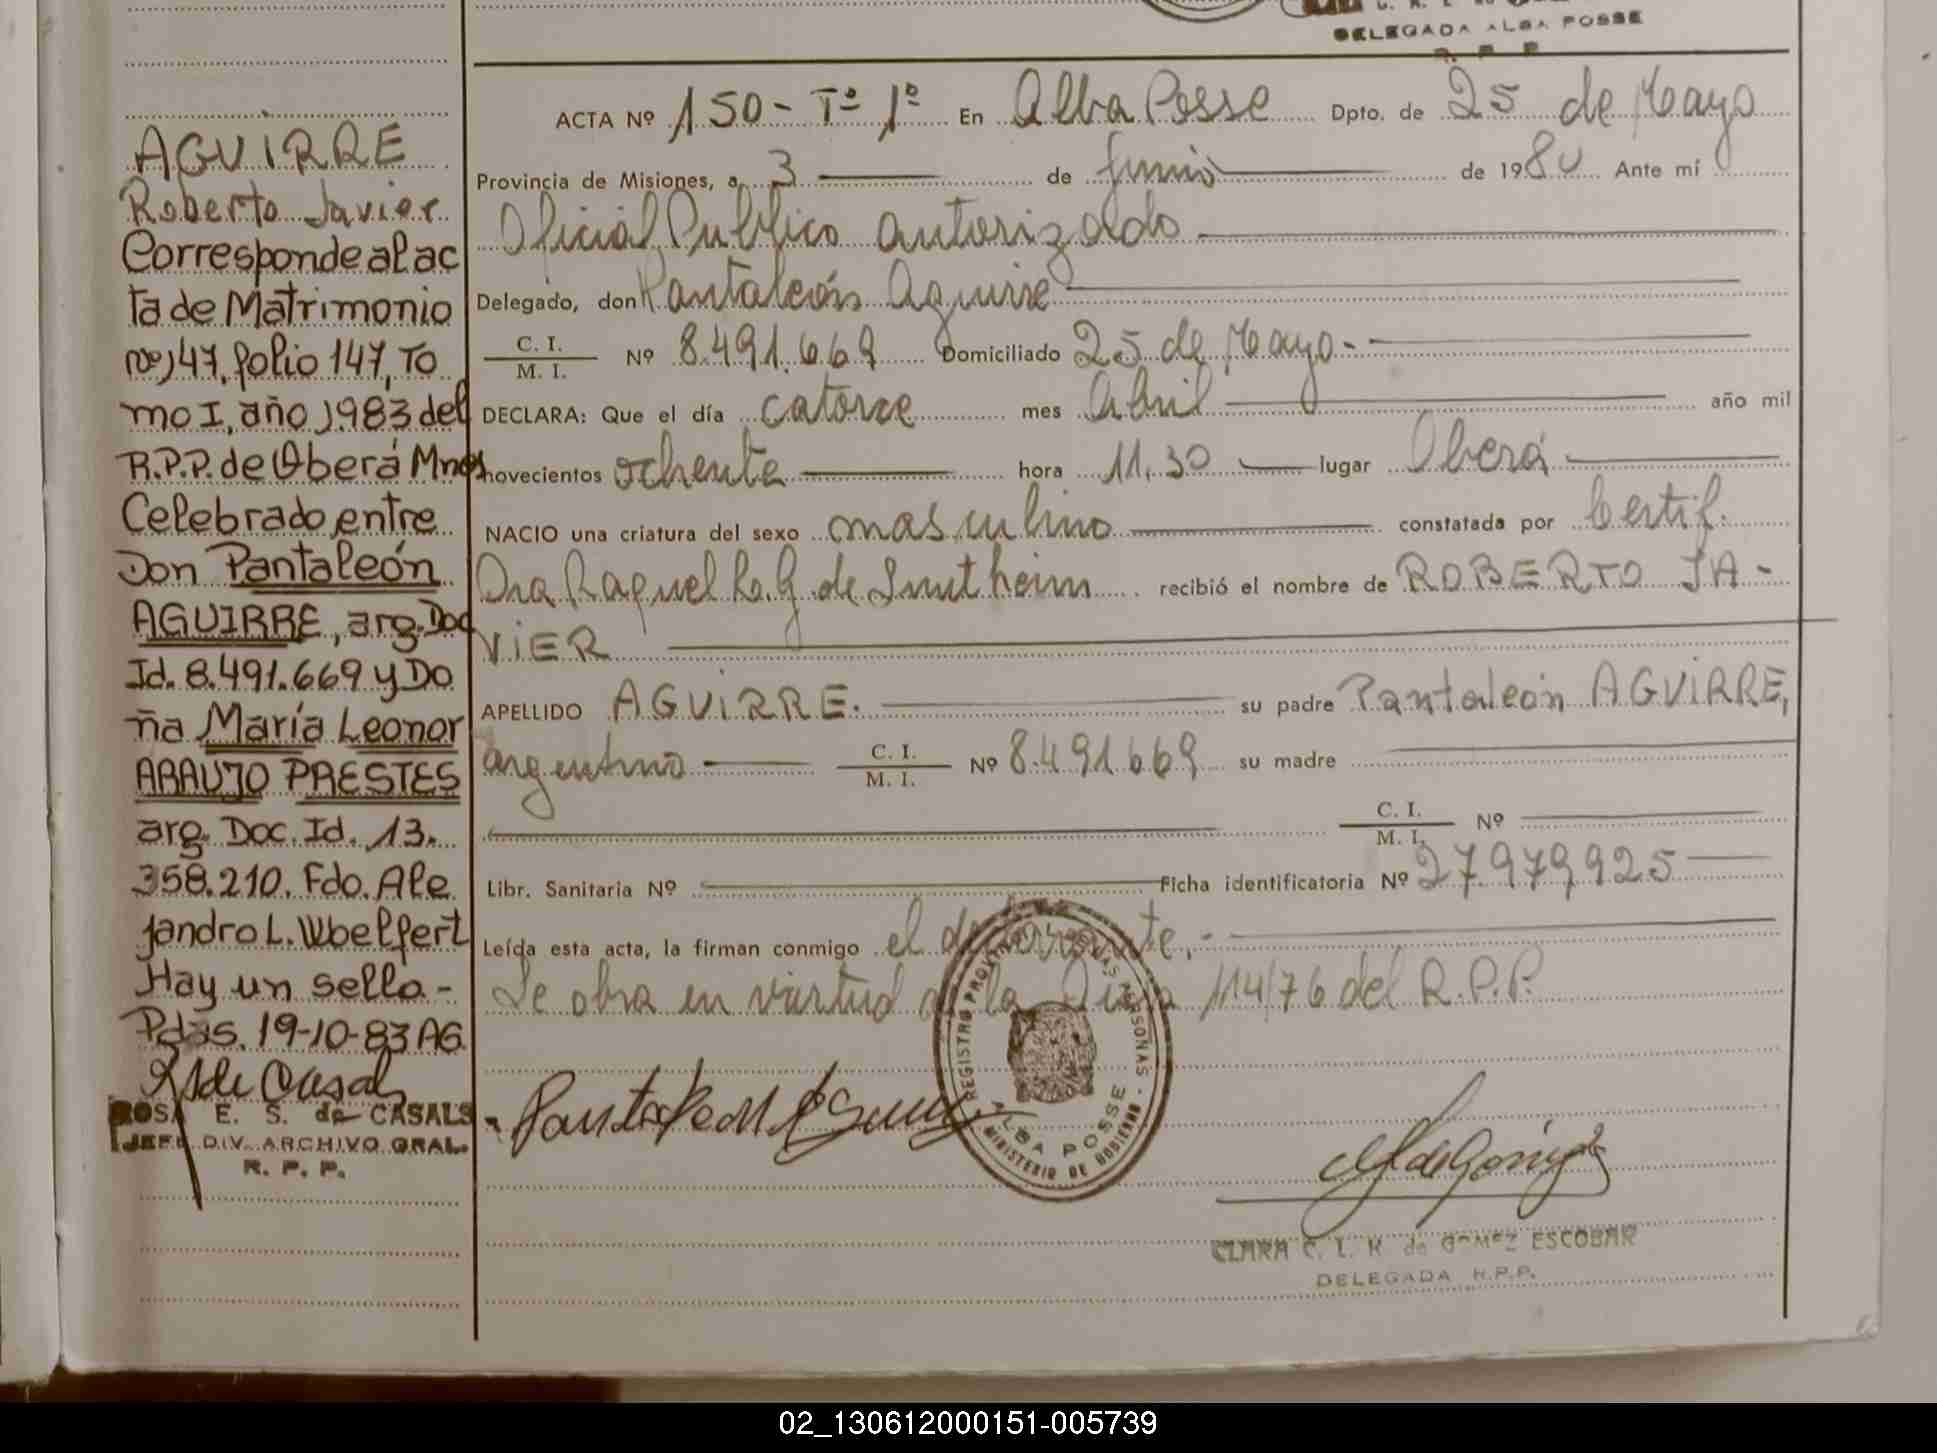 DELEGADA ALBA POSSE
R. P. P.
AGUIRRE
Roberto Javier
Corresponde al ac
ta de Matrimonio
Nº 147, folio 147, To
mo I, año 1983 del
R.P.P. de Oberá Mnes
Celebrado entre
Don Pantaleón
AGUIRRE, arg. Doc
Id. 8.491.669 y Do
ña María Leonor
ARAUJO PRESTES
arg. Doc. Id. 13.
358.210. Fdo. Ale
jandro L. Wbelfert
Hay un sello -
Pdas. 19-10-83 AG.
ROSA E. S. de CASALS
JEFE DIV. ARCHIVO GRAL.
R. P. P.
ACTA Nº 150 - Tº 1º En Alba Posse Dpto. de 25 de Mayo
Provincia de Misiones, a 3 de junio de 1980 Ante mí
Oficial Publico autorizado
Delegado, don Pantaleón Aguirre
C. I. / M. I. Nº 8.491.669 Domiciliado 25 de Mayo.-
DECLARA: Que el día catorce mes Abril año mil
novecientos ochenta hora 11,30 lugar Oberá
NACIO una criatura del sexo masculino constatada por Certif.
Dra Raquel R. G. de Smtheim recibió el nombre de ROBERTO JA-
VIER
APELLIDO AGUIRRE. su padre Pantaleón AGUIRRE,
argentino C. I. / M. I. Nº 8.491669 su madre
C. I. / M. I. Nº
Libr. Sanitaria Nº Ficha identificatoria Nº 27.979,925
Leída esta acta, la firman conmigo el declarante,-
Se obra en virtud de la Disp 114/76 del R.P.P.
REGISTRO PROVINCIAL DE LAS PERSONAS
ALBA POSSE
MINISTERIO DE GOBIERNO
CLARA C. L. K. de GOMEZ ESCOBAR
DELEGADA R.P.P.
02_130612000151-005739